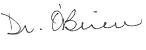 Dr. O'Brien